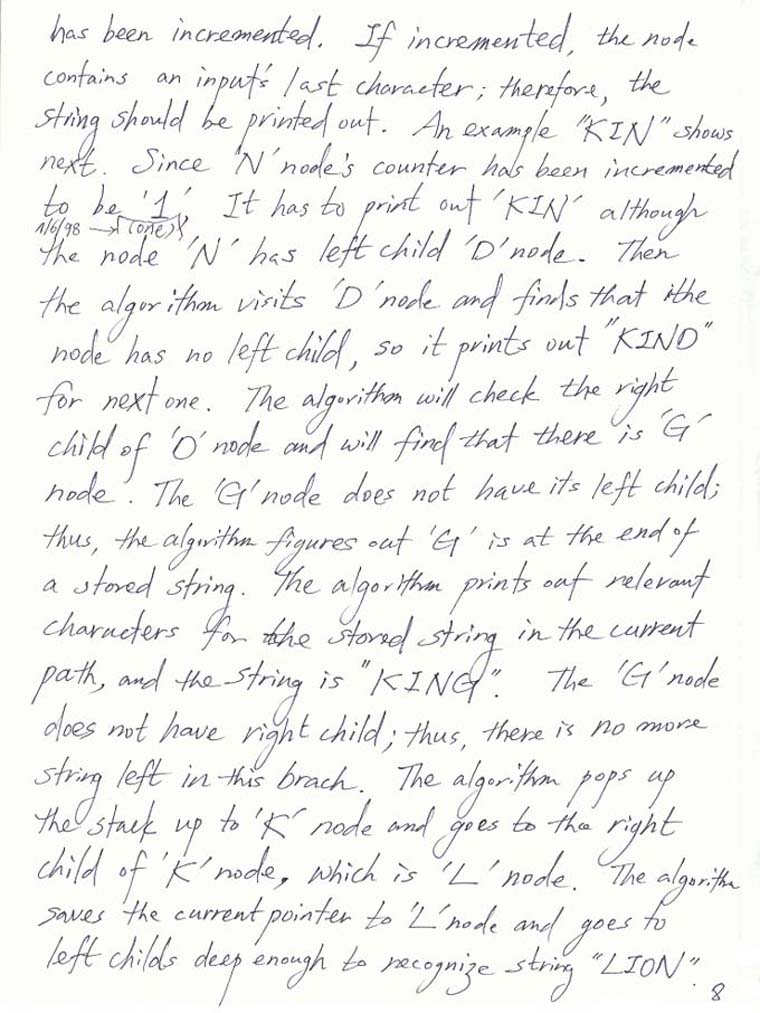 has been incremented. If incremented, the node
contains an input's last character; therefore, the
string should be printed out. An example "KIN" shows
next. Since 'N' node's counter has been incremented
to be '1'. It has to print out 'KIN' although
1/6/98 → (one)
the node 'N' has left child 'D' node. Then
the algorithm visits 'D' node and finds that the
node has no left child, so it prints out "KIND"
for next one. The algorithm will check the right
child of 'D' node and will find that there is 'G'
node. The 'G' node does not have its left child;
thus, the algorithm figures out 'G' is at the end of
a stored string. The algorithm prints out relevant
characters for the stored string in the current
path, and the string is "KING". The 'G' node
does not have right child; thus, there is no more
string left in this brach. The algorithm pops up
the stack up to 'K' node and goes to the right
child of 'K' node, which is 'L' node. The algorithm
saves the current pointer to 'L' node and goes to
left childs deep enough to recognize string "LION".
8